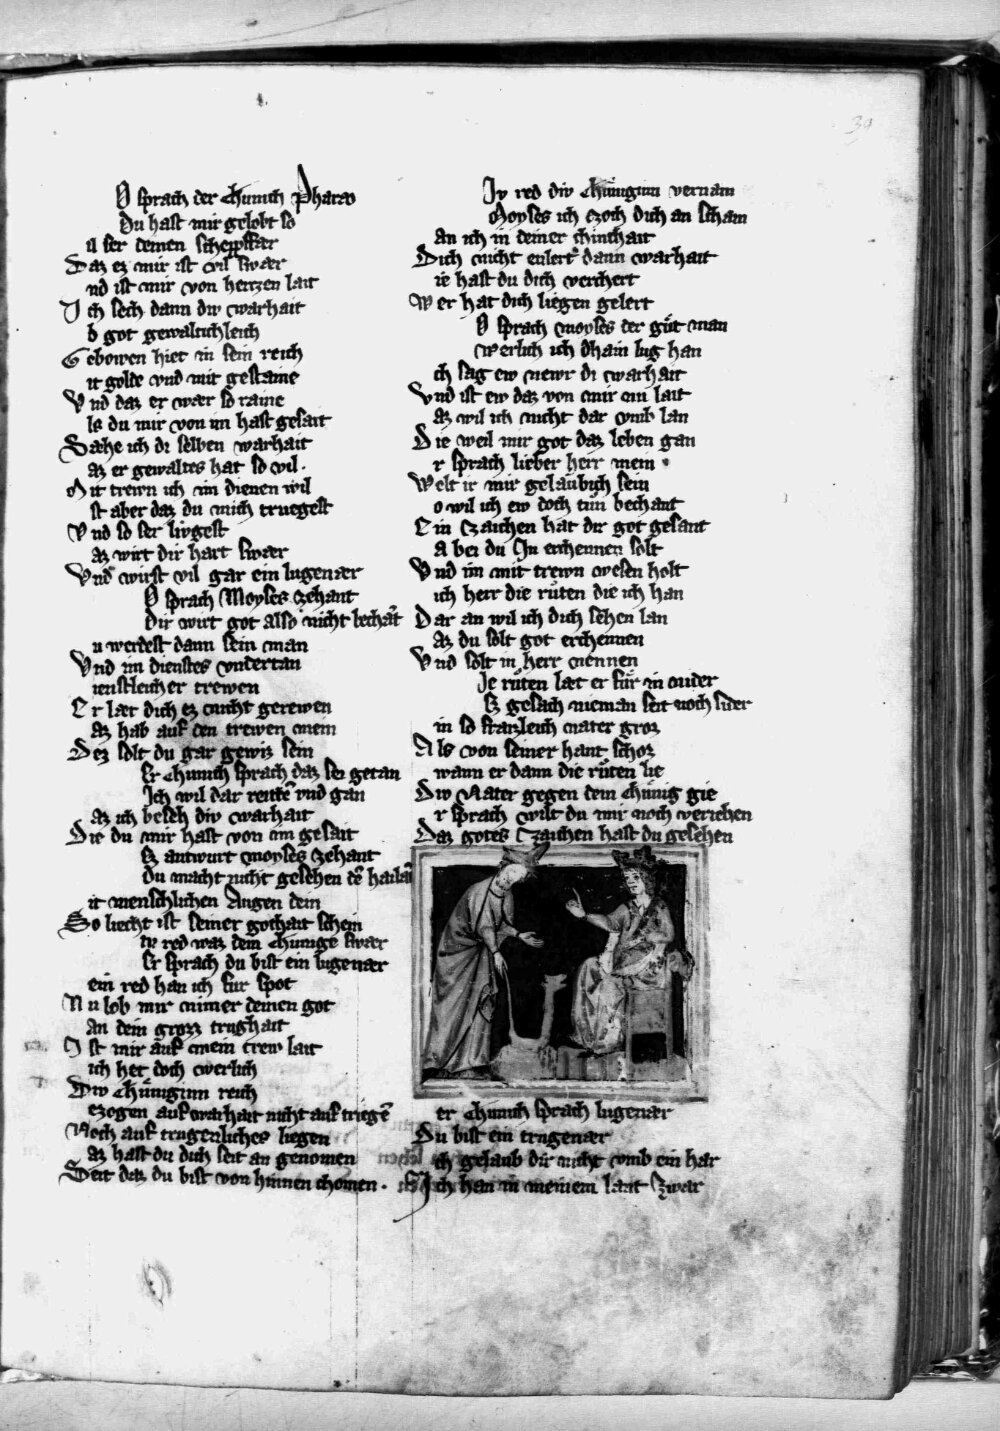 O sprach der chunich Pharao
Du hast mir gelobt so
il ser deinen scheppffær
Daz ez mir ist vil swær
nd ist mir von hertzen lait
Ich sech dann div warhait
b got gewaltichleich
Gebowen hiet in sein reich
it golde vnd mit gestaine
Vnd daz er wær so raine
ls du mir von im hast gesait
Sæhe ich di selben warhait
az er gewaltes hat so vil.
Mit trewn ich im dienen wil
st aber daz du mich truegest
Vnd so ser livgest
az wirt dir hart swær
Vnd wirst vil gar ein lugenær
O sprach Moyses zehant
Dir wirt got also nicht bechāt
u werdest dann sein man
Vnd im dienstes vndertan
ienstleicher trewen
Er læt dich ez nicht gerewen
az hab auf den trewen mein
Dez solt du gar gewiz sein
Er chunich sprach daz sei getan
Ich wil dar reitē vnd gan
az ich besech div warhait
Die du mir hast von im gesait
Ez antwurt moyses zehant
du macht nicht gesehen dē hailāt
it menschlichen Augen dein
So liecht ist seiner gothait schein
iv red waz dem chunige swær
Er sprach du bist ein lugenær
ein red han ich fur spot
Nu lob mir nimer deinen got
an dein grozz trughait
Ist mir auf mein trew lait
ich het doch werlich
Div chüniginn reich
ezogen auf warhait nicht auf triegē
Noch auf trugenliches liegen
az hast du dich seit an genomen
Seit daz du bist von hinnen chomen.
Iv red div chüniginn vernam
Moyses ich czoch dich an scham
an ich in deiner chinthait
Dich nicht enlert dann warhait
ie hast du dich verchert
Wer hat dich liegen gelert
O sprach moyses der güt man
werlich ich dhain lug han
ch sag ew newr di warhait
Vnd ist ew daz von mir ein lait
az wil ich nicht dar vmb lan
Die weil mir got daz leben gan
r sprach lieber herr mein
Welt ir mir gelaubich sein
o wil ich ew doch tün bechant
Ein czaichen hat dir got gesant
a bei du In erchennen solt
Vnd im mit trewn wesen holt
ich herr die rüten die ich han
Dar an wil ich dich sehen lan
az du solt got erchennen
Vnd solt in herr nennen
Ie rüten læt er für in nider
Ez gesach nieman seit noch sider
in so starchleich nater groz
Als von seiner hant schoz
wann er dann die rüten lie
Div Nater gegen dem chünig gie
r sprach wilt du mir noch veriehen
Daz gotes Czaichen hast du gesehen
er chunich sprach lugenær
Du bist ein trugenær
ch gelaub dir nicht vmb ein har
Ich han in meinem lant Zwar